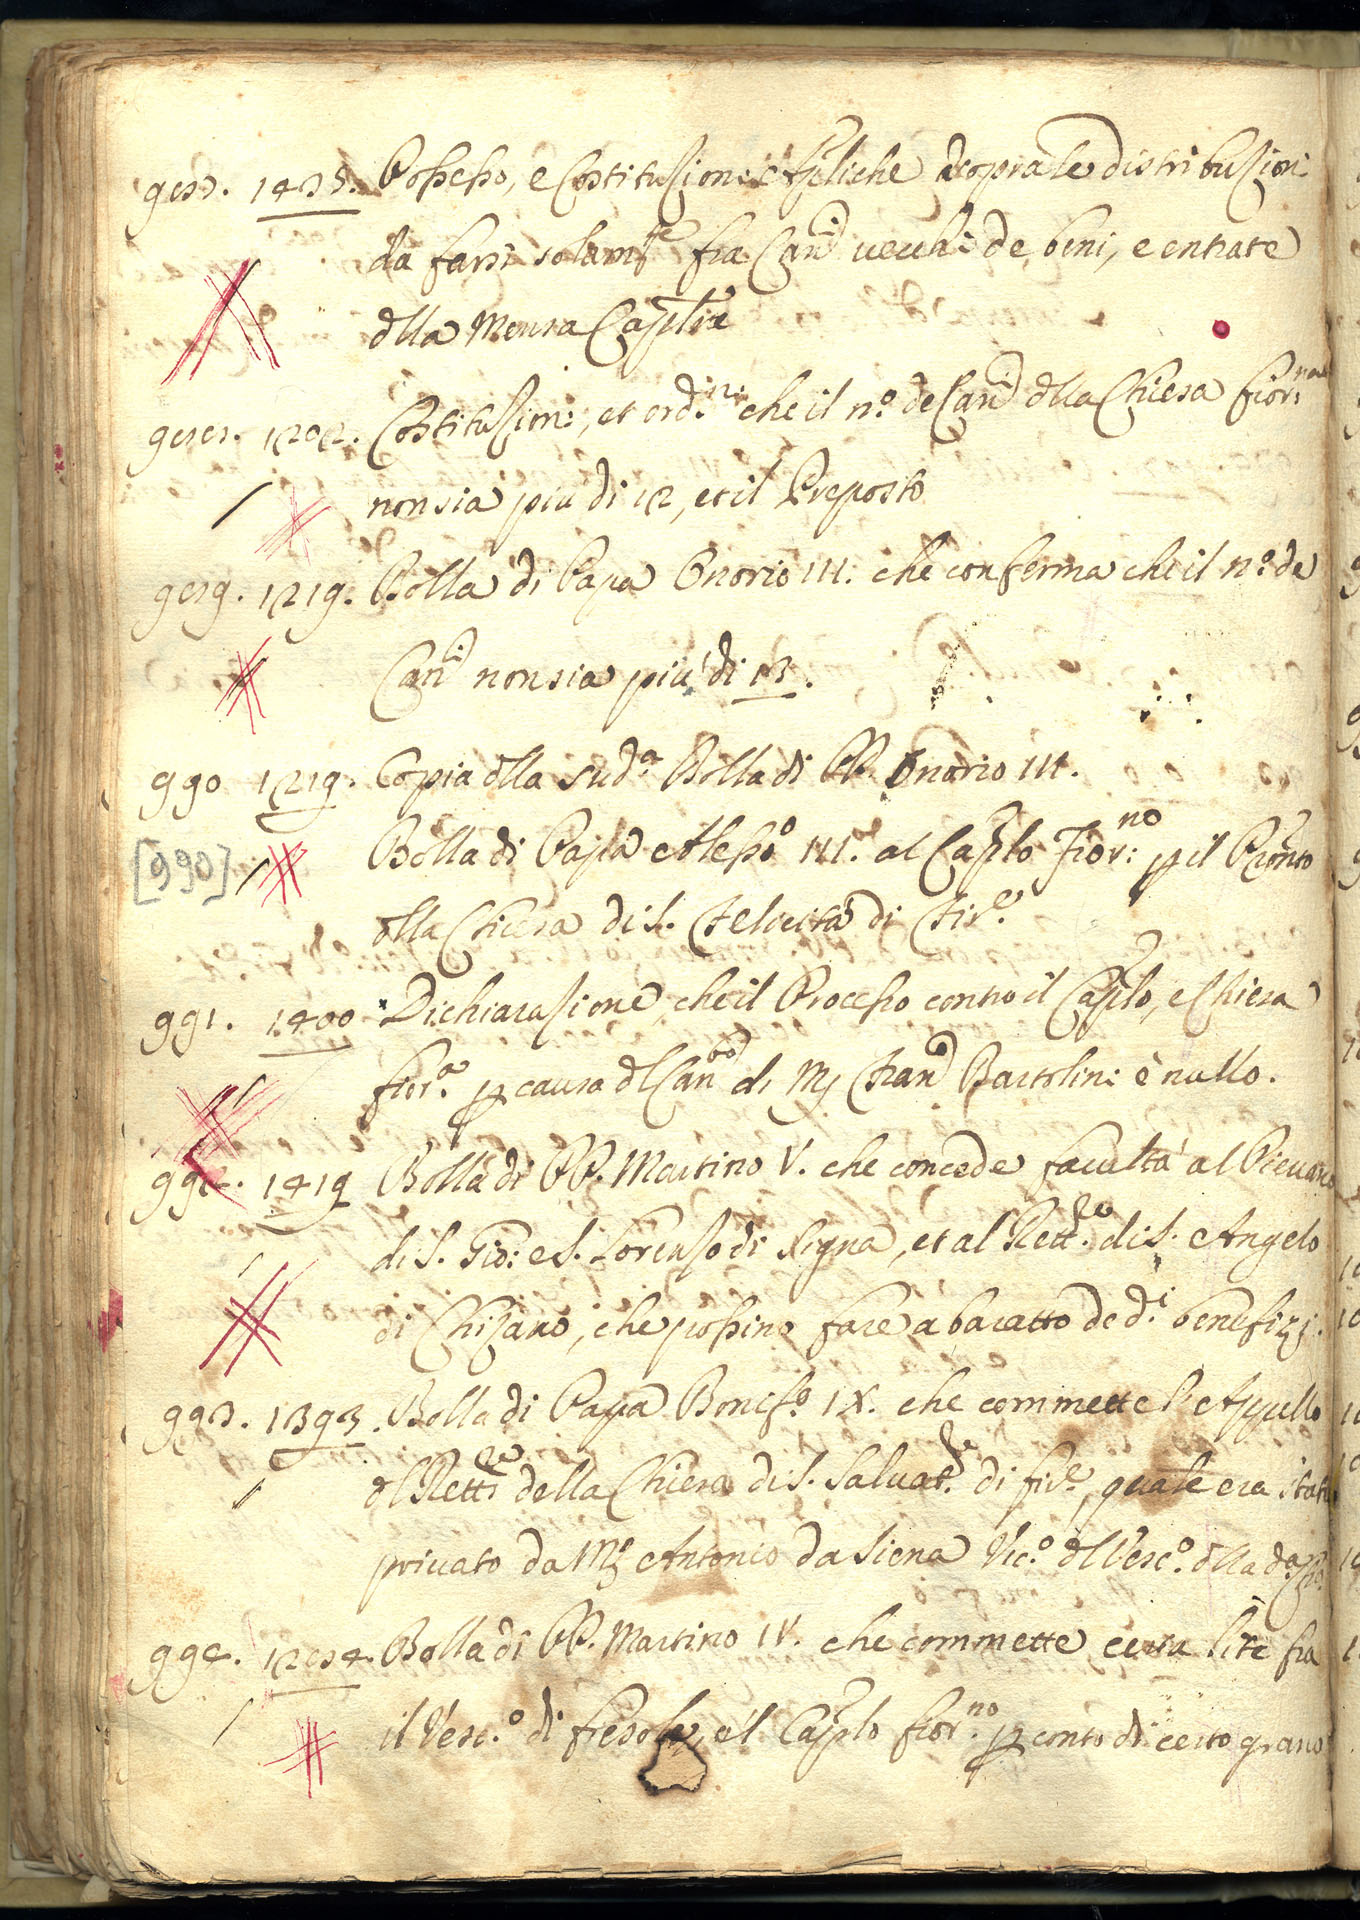 987. 1435. Possesso, e Costituzioni Apliche sopra le distribuzioni
da farsi solamte fra Canci vecchi de beni, e entrate
dlla Mensa Caplre
988. 1202. Costituzioni, et ordni che il no. de Canci dlla Chiesa fiorna
non sia piu di 12, et il Preposto
989. 1219. Bolla di Papa Onorio III. che conferma che il no. de
Canci non sia piu di 13.
990 1219. Copia dlla sudа. Bolla di PP. Onorio III.
[990] Bolla di Papa Alesso III. al Caplo Fior:no p il
dlla Chiesa di S. Felicita di Fire.
991. 1400 Dichiarazione, che il Processo contro il Caplo, e Chiesa
fiora. p causa dl Canco di Mr Franco Bartolini è nullo.
992. 1419 Bolla di PP. Martino V. che concede facultà al Pievano
di S. Gio: e S. Lorenzo di Signa, et al Rettre. di S. Angelo
di, che possino fare a baratto de di. benefizj.
993. 1393. Bolla di Papa Bonifo. IX. che commette l'Appello
dl Rettre della Chiesa di S. Salvatre. di fire, quale era stato
privato da Mr Antonio da Siena Vico. dl Vesco. dlla da.
994. 1284. Bolla di PP. Martino IV. che commette certa lite fra
il Vesco. di fiesole, e'l Caplo fiorno. p conto di certo grano